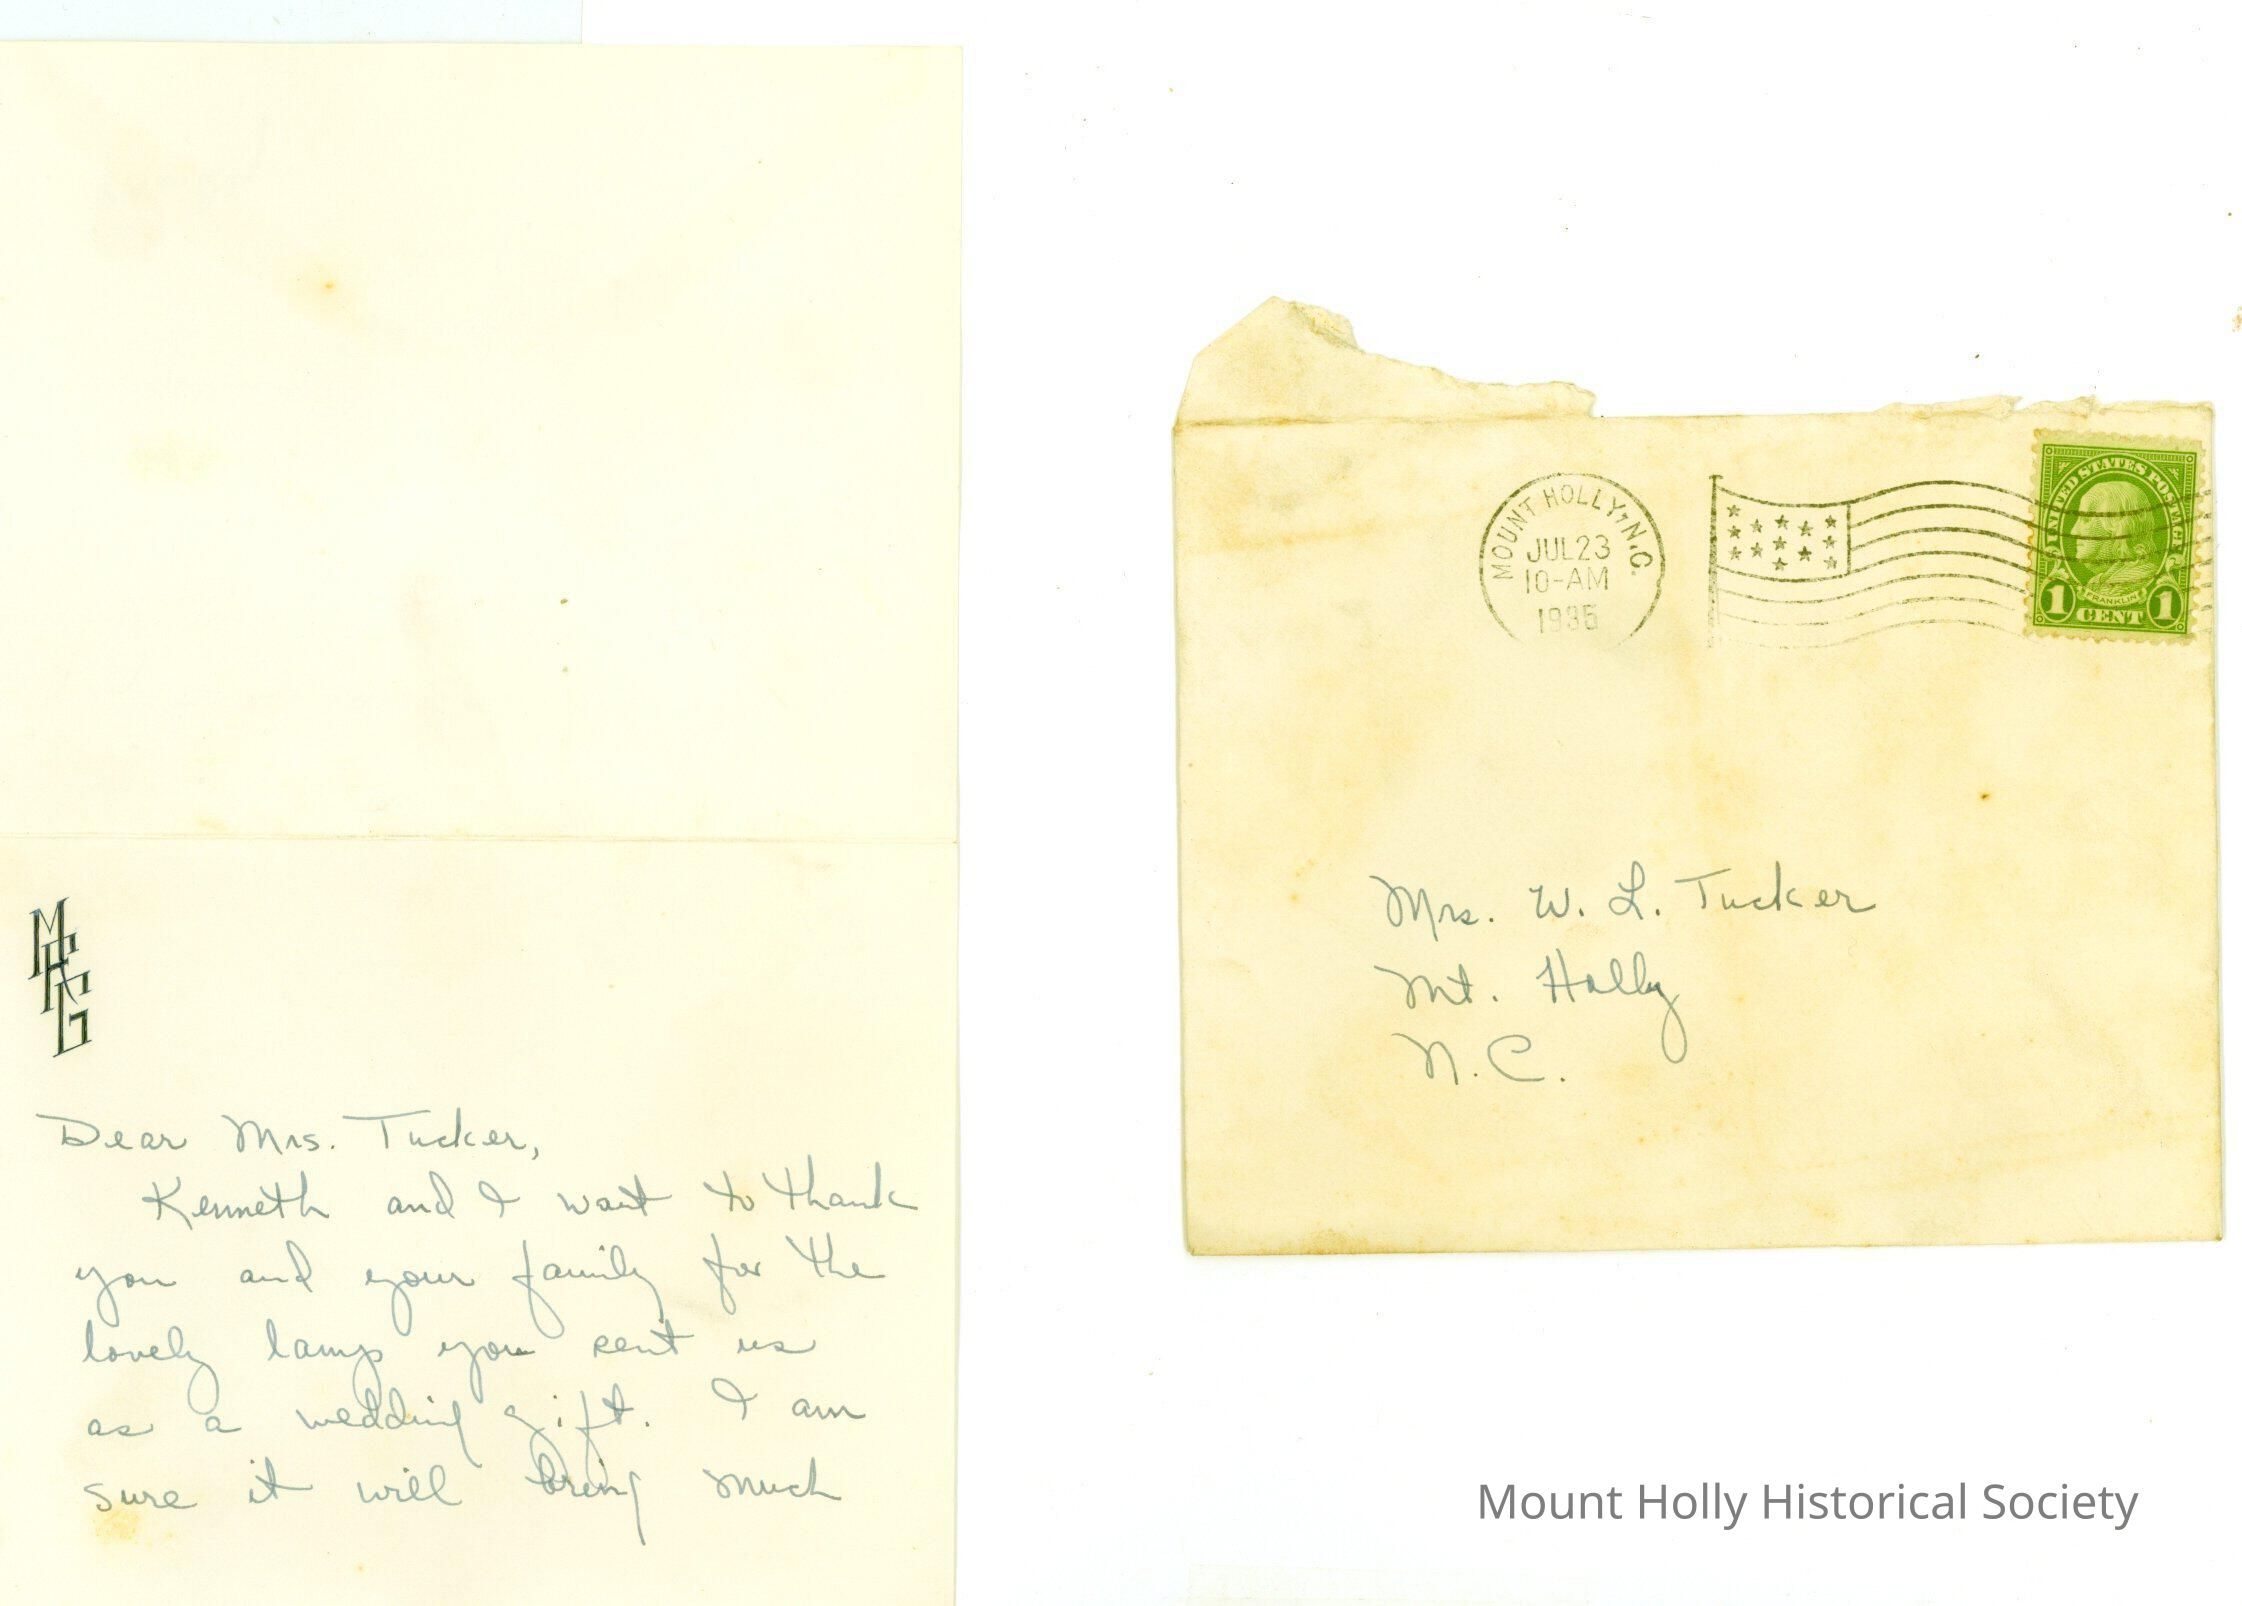 MFG
Dear Mrs. Tucker,
Kenneth and I want to thank
you and your family for the
lovely lamp you sent us
as a wedding gift. I am
sure it will bring much
MOUNT HOLLY, N.C.
JUL 23
10-AM
1935
UNITED STATES POSTAGE
FRANKLIN
1 CENT 1
Mrs. W. L. Tucker
Mt. Holly
N. C.
Mount Holly Historical Society